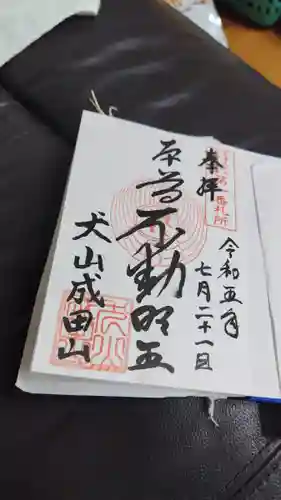 奉拝
令和五年
七月二十一日
本尊不動明王
犬山成田山